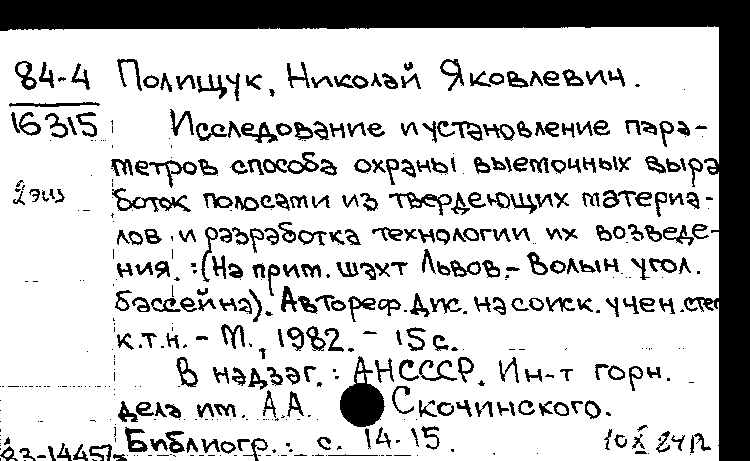 84-4 Полищук, Николай Яковлевич.
16315 Исследование и установление пара-
метров способа охраны выемочных выра
2 экз боток полосами из твердеющих материа-
лов и разработка технологии их возведе-
ния. : (На прим. шахт Львов.- Волын. угол.
бассейна). Автореф. дис. на соиск. учен. степ
к.т.н. - М., 1982. - 15 с.
В надзаг. : АН СССР. Ин-т горн.
дела им. А.А. Скочинского.
Библиогр. : с. 14-15.
83-14457